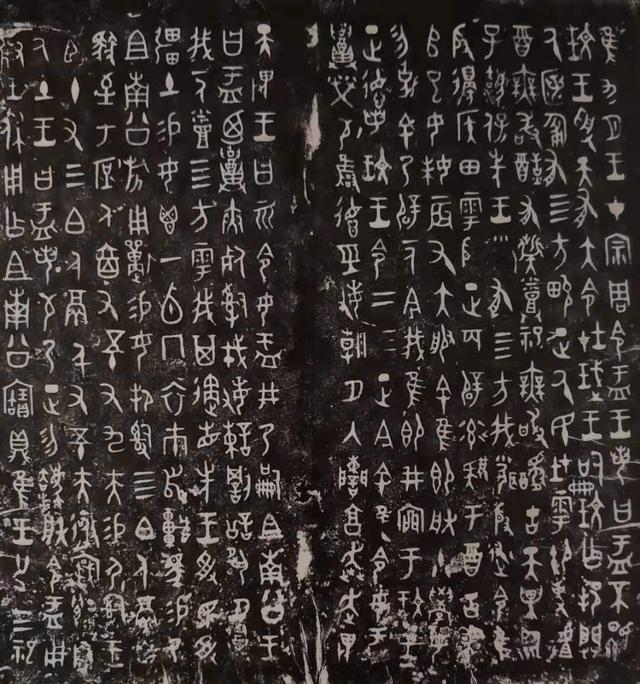 隹九月王才宗周令盂王若曰盂不顯
玟王受天有大令在珷王嗣玟乍邦闢
氒匿匍有四方畯正氒民在雩御事𠭯
酉無敢酖有髭烝祀無敢醻古天異臨
子灋保先王有四方我聞殷述令隹
殷邊侯田雩殷正百辟率肄于酉古喪
𠂤巳女妹辰又大服余隹即朕小學女
勿剋余乃辟一人今我隹即井廩于玟王
正德若玟王令二三正今余隹令女盂
召榮敬雍德經敏朝夕入讕享奔走畏
天畏王曰而令女盂井乃嗣且南公王
曰盂迺召夾死司戎敏諫罰訟夙夕召
我一人烝四方雩我其遹省先王受民受
疆土易女鬯一卣冂衣巿舄車馬易乃
且南公旂用狩易女邦司四白人鬲自
馭至于庶人六百又五十又九夫易尸司王
臣十又三白人鬲千又五十夫遷自
氒土王曰盂若敬乃正勿灋朕令盂用
對王休用乍且南公寶鼎隹王廿又三祀